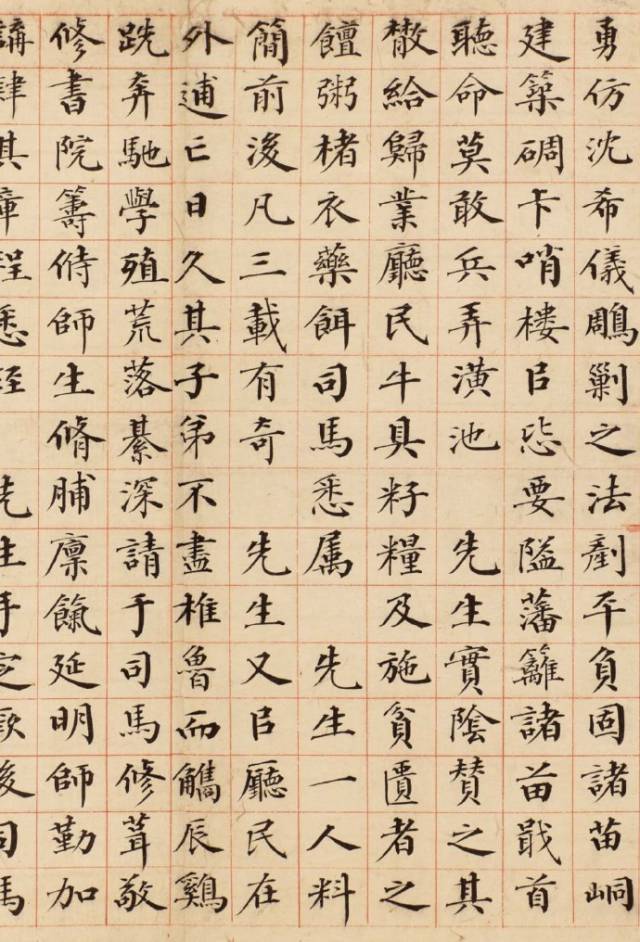 勇仿沈希儀鵰剿之法剷平負固諸苗峒
建築碉卡哨樓㠯要隘藩籬諸苗戢首
聽命莫敢兵弄潢池 先生實陰贊之其
散給歸業廳民牛具籽糧及施貧匱者之
饘粥楮衣藥餌司馬悉属 先生一人料
簡前後凡三載有奇 先生又㠯廳民在
外逋亡日久其子弟不盡椎魯而觿辰鷄
跣奔馳學殖荒落綦深請于司馬修葺敬
修書院籌偫師生脩脯廩餼延明師勤加
講肄其章程悉經 先生手定厥後司馬